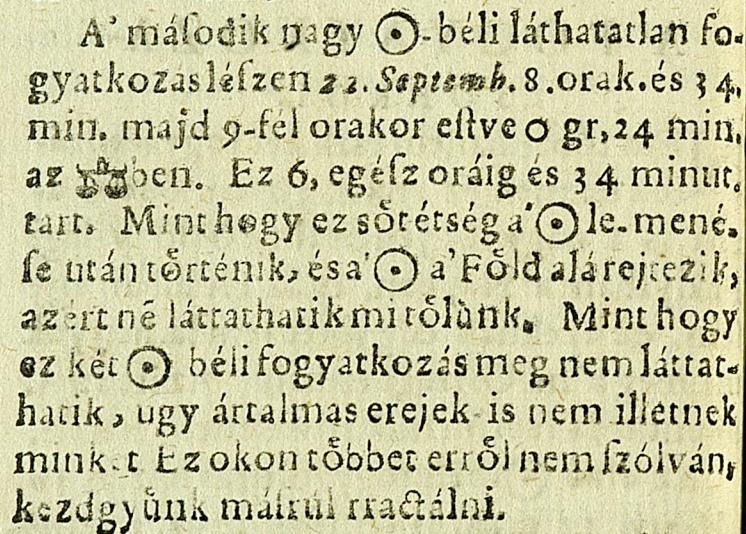 A' máſodik nagy ☉-béli láthatatlan fo-
gyatkozás léſzen 22. Septemb. 8. orak. és 34.
min. majd 9-fél orakor eſtve 0 gr, 24 min.
az ♎ben. Ez 6, egéſz oráig és 34 minut.
tart. Mint hogy ez ſőtétſég a' ☉ le-mené-
ſe után tőrténik, és a' ☉ a' Főld alá rejtezik,
azért nē láttathatik mi tőlůnk. Mint hogy
ez két ☉ béli fogyatkozás meg nem láttat-
hatik, ugy ártalmas erejek is nem illetnek
minket Ez okon tőbbet erről nem ſzólván,
kezdgyůnk máſrúl rractálni.